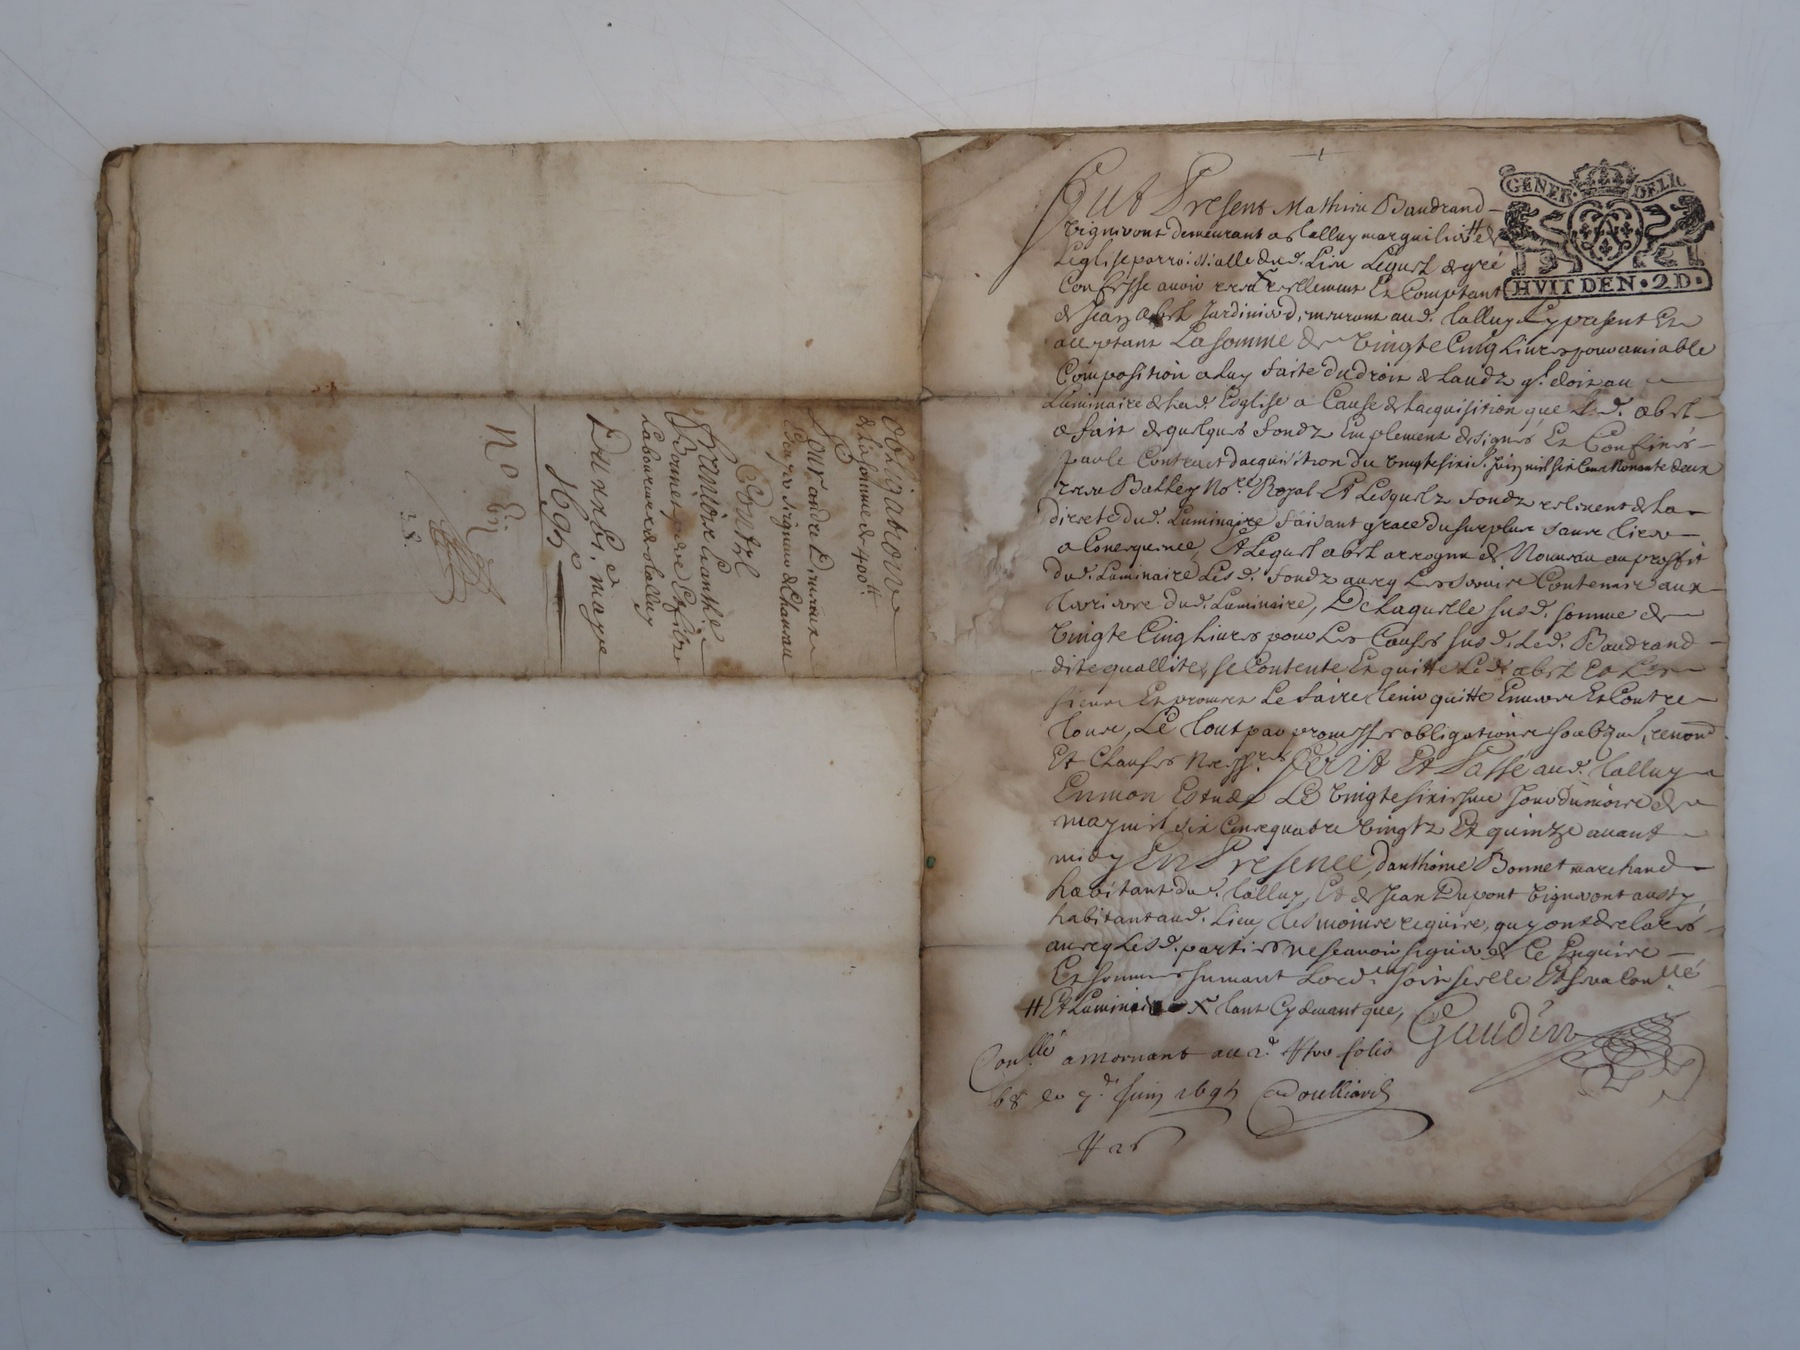 obligation
de La somme de 400tt
Pour andre Dimeux
Bourgeois de Chavau
Contre
Françoise Lanthe
Bonnet, pere Et filz
Laboureurs de talluy
Du xxbi.e maye
1695
No
GENER DE LION
HVIT DEN. 2D.
Fut Present Mathieu Baudrand
vigneront demeurant a talluy marguilier # de
Leglise parroissialle dud. Lieu Lequel de gré
Confesse avoir receu X reellement Et Comptant
de Jean abel Jardinier demeurant aud. talluy Cy present Et
acceptant La somme de vingte Cinq Livres pour amiable
Composition a Luy faite du droit de Laudz q.l doit au
Luminaire de Lad. Esglise a Cause de Lacquisition que Led. abel
a fait de quelques fondz Emplement designés Et Confinés
par le Contract dacquisition du vingtesixie. Juin mil six Cent Nonante deux
receu Bathey No.re Royal Et Lesquelz fondz relevent de La
directe dud. Luminaire faisant grace du surplus sans tirer
a Consequence, Et Lequel abel a recognu de Nouveau au proffit
dud. Luminaire Lesd. fondz avecq Les servis Contenus aux
terriers dud. Luminaire, De Laquelle susd. somme de
vingte Cinq Livres pour Les Causes susd. Led. Baudrand
dite quallite, se Contente Et quitte Led. abel Et Les
siens Et promet Le faire tenir quitte Envers Et Contre
tous, Le tout par promesses obligations soubz... renond
Et Clauses Ness.res fait Et Passe aud. talluy
En mon Estude Le vingtesixiesme Jour du mois de
may mil six Cens quatre vingtz Et quinze avant
midy En Presence, danthoine Bonnet marchand
habitant dud. talluy, Et de Jean Dupont vigneront aussy
habitant aud. Lieu tesmoins requis, quy ont declares
avecq Lesd. parties ne scavoir signer de Ce Enquis
Et sommes suivant Lord. soit scelle Et sera Con.llé
# Et Luminaire X tant Cy devant que, Gaudin
Con.llé a Mornant au 2.e ... folio
68 Le 7.e Juin 1695